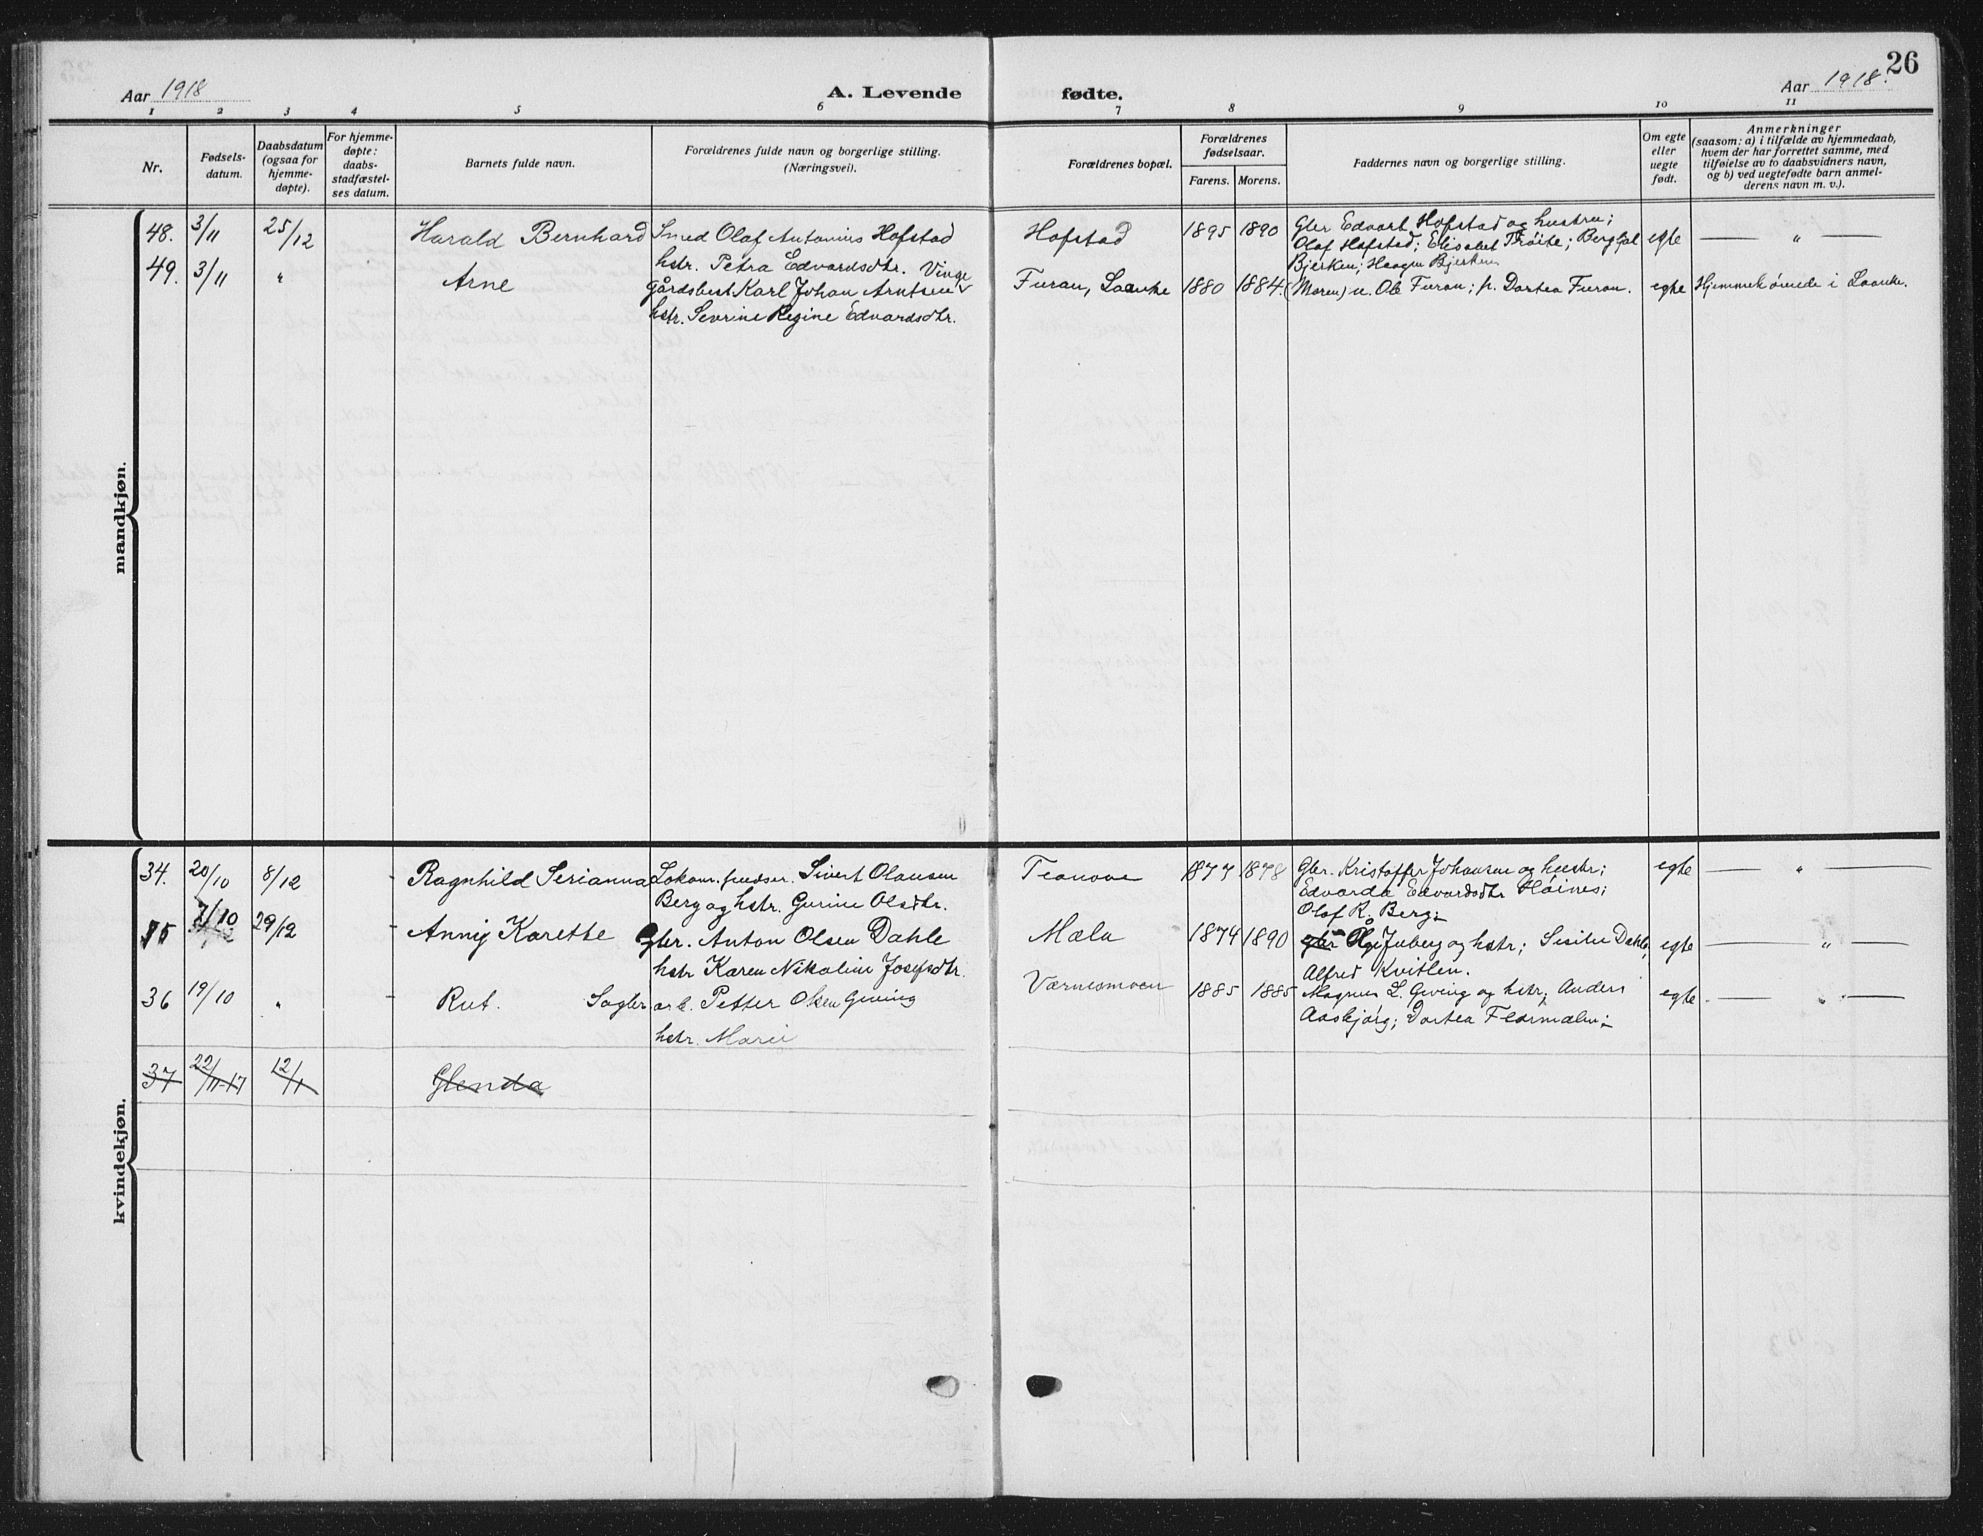 26
Aar 1918
A. Levende
fødte.
Aar 1918.
1 2 3 4 5 6 7 8 9 10 11
Nr.
Fødsels-
datum.
Daabsdatum
(ogsaa for
hjemme-
døpte).
For hjemme-
døpte:
daabs-
stadfæstel-
ses datum.
Barnets fulde navn.
Forældrenes fulde navn og borgerlige stilling.
(Næringsvei).
Forældrenes bopæl.
Forældrenes
fødselsaar.
Farens. Morens.
Faddernes navn og borgerlige stilling.
Om egte
eller
uegte
født.
Anmerkninger
(saasom: a) i tilfælde av hjemmedaab,
hvem der har forrettet samme, med
tilføielse av to daabsvidners navn,
og b) ved uegtefødte barn anmel-
derens navn m. v.).
mandkjøn.
48. 3/11 25/12 Harald Bernhard Smed Olaf Antonius Hofstad
hstr. Petra Edvardsdtr. Vinge
Hofstad 1895 1890 Gbr Edvart Hofstad og hustru;
Olaf Hofstad; Elisabet Trøite; Bergljot
Bjerken; Haagen Bjerken
egte — „ —
49. 3/11 „ Arne Gårdsbest Karl Johan Arntsen
hstr. Sevrine Regine Edvardsdtr.
Furan, Laanke 1880 1884. (Moren) u. Ole Furan; p. Dortea Furan. egte Hjemmehørende i Laanke.
kvindekjøn.
34. 20/10 8/12 Ragnhild Serianna Lokom. pudser. Sivert Olausen
Berg og hstr. Gurine Olsdtr.
1877 1878 Gbr. Kristoffer Johansen og hustr;
Edvarda Edvardsdtr Høines;
Olaf R. Berg;
egte — „ —
35 7/10 29/12 - Annij Karette Gbr. Anton Olsen Dahle
hstr Karen Nikoline Josefsdtr.
Mæla 1874 1890 og hstr; Dahle,
Alfred Kvitlen.
egte — „ —
36 19/10 „ - Rut. Sagbr arb. Petter Olsen Geving
hstr. Marie
Værnesmoen 1885 1885 Magnus L. Geving og hstr; Anders
Aasbjørg; Dortea
egte — „ —
37 22/11-17 12/1 Glenda